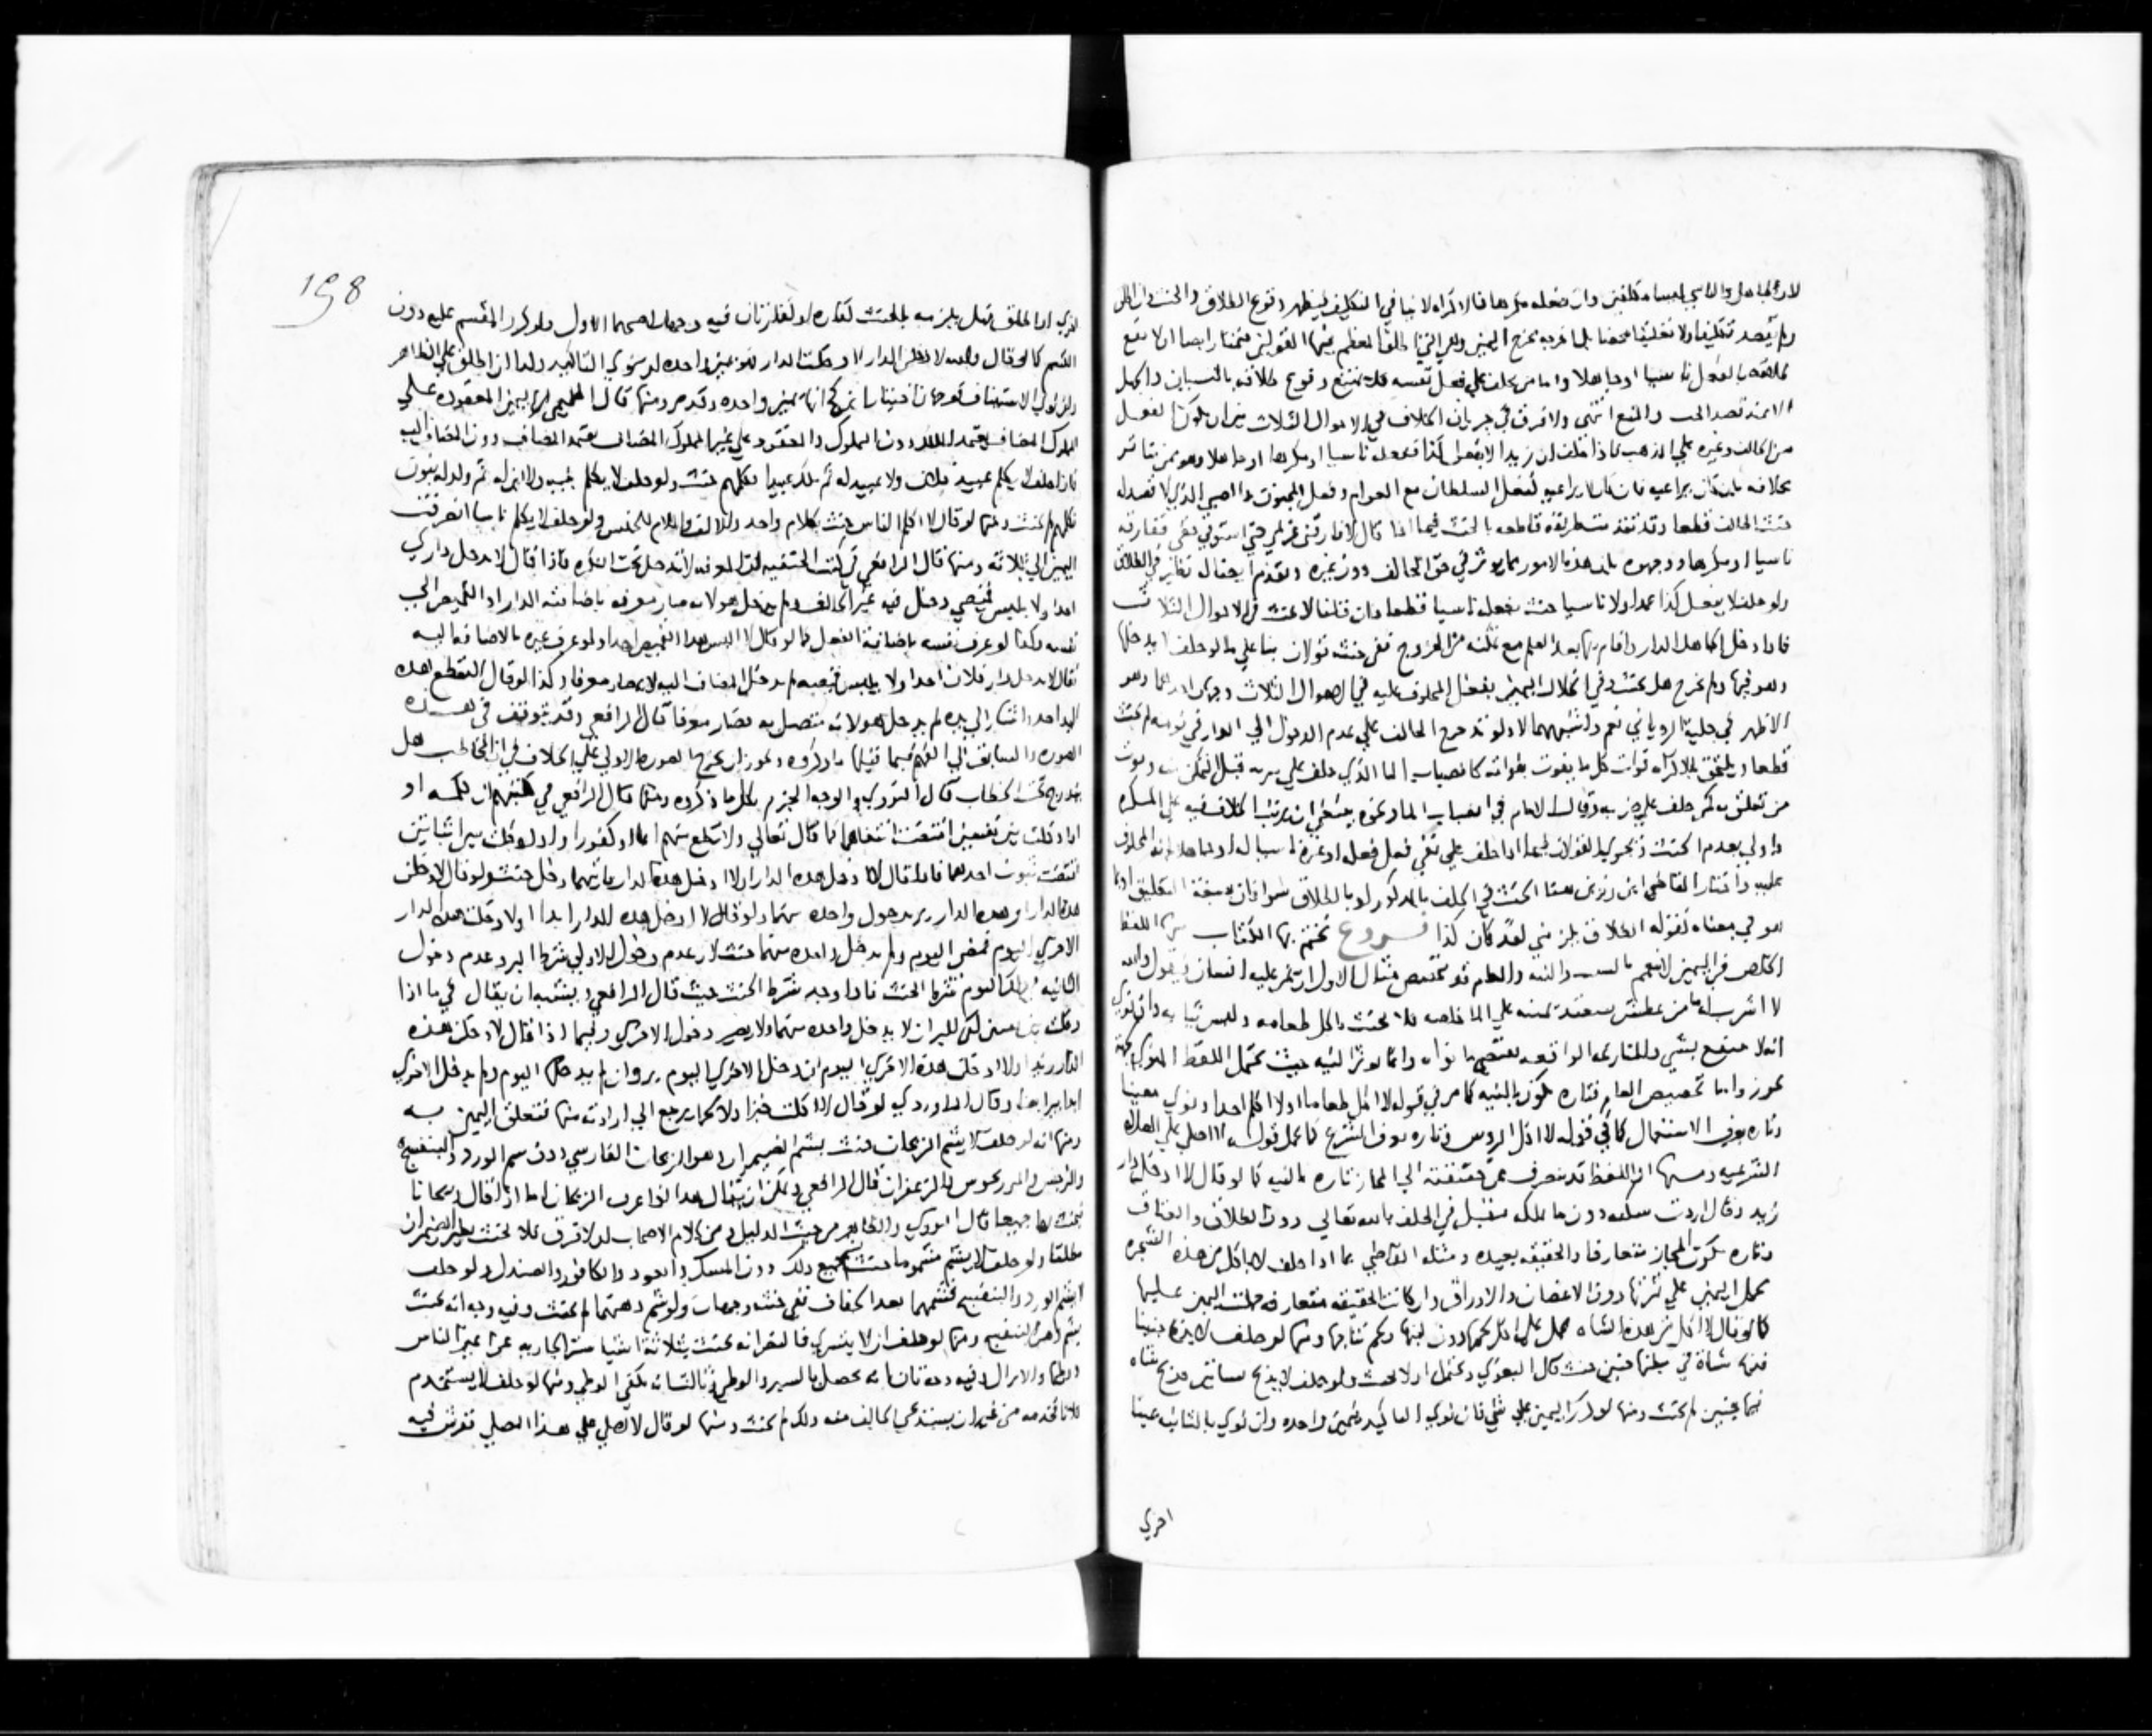 لان الجاهل والناسي ليسا مكلفين وان جعله مكرها فالاكراه لا ينافي التكليف فيظهر وقوع الطلاق والحنث
ولم يقصد تعليقا ولا تعليقا محضا بل ما عربه مخرج اليمين
الحالف ناسيا او جاهلا واما من يحلف علي فعل نفسه فلا يمتنع وقوع طلاقه بالنسيان والجهل
لان قصد الحث والمنع انتهي ولا فرق في جريان الخلاف في الاحوال الثلاث بين ان يكون الفعل
من الحالف وغيره علي المذهب فاذا حلف ان زيدا لا يفعل كذا ففعله ناسيا او مكرها او جاهلا وهو ممن
بخلافه بان كان يراعيه فان كان لا يراعيه كفعل السلطان مع العوام وفعل المجنون والصبي الذي لا قصد له
حنث الحالف قطعا وقد تقدم طريقة قاطعة بالحنث فيما اذا قال لا افارق غريمي حتي استوفي حقي ففارقه
ناسيا او مكرها ووجهوه بان هذه الامور انما تؤثر في حق الحالف دون غيره
ولو حلف لا يفعل كذا عمدا ولا ناسيا حنث بفعله ناسيا قطعا وان قلنا لا يحنث في الاحوال الثلاث
فاذا دخل جاهلا الدار واقام بها بعد العلم مع تمكنه من الخروج ففي حنثه قولان بناء علي ما لو حلف لا يدخلها
وهو فيها ولم يخرج هل يحنث وفي انحلال اليمين بفعل المحلوف عليه في الاحوال الثلاث وجهان احدهما وهو
الاظهر في حلية الروياني نعم واشبههما لا ولو تدحرج الحالف علي عدم الدخول الي الدار في نومه لم يحنث
قطعا ويلتحق بالاكراه فوات كل ما يفوت بفواته كانصباب الماء الذي حلف علي شربه قبل التمكن منه وموت
من تعلق به كمن حلف علي ضربه وقال الامام في انصباب الماء ونحوه ينبغي ان يرتب الخلاف فيه علي المكره
واولي بعدم الحنث ويجري القولان فيما اذا حلف علي نفي فعل فعله او غيره ناسيا له او جاهلا انه المحلوف
عليه واختار القاضي ابن رزين هنا الحنث في الحلف بالله كذلك او بالطلاق سوا كان بصيغة التعليق او ما
هو في معناه كقوله الطلاق يلزمني لقد كان كذا فروع نختم بها الكتاب منها اللفظ
الخاص في اليمين لا يعمم بالسبب والنية والعام قد يخصص مثال الاول ان يمن عليه انسان فيقول والله
لا اشرب لك ما من عطش ينعقد يمينه علي الماء خاصة فلا يحنث باكل طعامه ولبس ثيابه وان نوي
انه لا ينتفع بشي وان كانت الواقعة تقتضي ما نواه وانما تؤثر النية حيث يحتمل اللفظ المنوي بجهة
تجوز واما تخصيص العام فتارة يكون بالنية كما مر في قوله لا اكل طعاما او لا اكلم احدا ونوي معينا
وتارة بعرف الاستعمال كما في قوله لا اكل الرؤس وتارة بعرف الشرع كما يحمل قوله لا اصلي علي الصلاة
الشرعية ومنها ان اللفظ قد يتصرف عن حقيقته الي المجاز فتارة بالنية كما لو قال لا ادخل دار
زيد وقال اردت مسكنه دون ما يملكه فيقبل في الحلف بالله تعالي دون الطلاق والعتاق
وتارة بكون المجاز متعارفا والحقيقة بعيدة ومثله القاضي بما اذا حلف لا ياكل من هذه الشجرة
تحمل اليمين علي ثمرتها دون الاغصان والاوراق وان كانت الحقيقة متعارفة حملت اليمين عليها
كما لو قال لا اكل من هذه الشاة حمل علي اكل لحمها دون لبنها ولحم نتاجها ومنها لو حلف لا يذبح جنينا
فذبح شاة في بطنها جنين حنث قال البغوي ويحتمل ان لا يحنث ولو حلف لا يذبح شاتين فذبح شاة
في بطنها جنين لم يحنث ومنها لو كرر اليمين علي شي فان نوي التاكيد فيمين واحدة وان نوي بالثانية يمينا
اخري
198
اخري او اطلق فهل يلزمه بالحنث كفارة او كفارتان فيه وجهان اصحهما الاول ولو كرر المقسم عليه دون
القسم كما لو قال والله لا دخلت الدار لا دخلت الدار فهو يمين واحدة ان نوي التاكيد وكذا ان اطلق علي الظاهر
وان نوي الاستيناف فوجهان انها يمين واحدة وقد مر ومنها قال الحليمي اليمين المعقودة علي
المملوك المضاف يعتمد المالك دون المملوك والمعقودة علي غير المملوك المضاف يعتمد المضاف دون المضاف اليه
فاذا حلف لا يكلم عبيد فلان ولا عبيد له ثم ملك عبيدا فكلمهم حنث ولو حلف لا يكلم بنيه ولا ابن له ثم ولد له بنون
فكلمهم لم يحنث ومنها لو قال لا اكلم الناس حنث بكلام واحد والالف واللام للجنس ولو حلف لا يكلم ناسا انصرفت
اليمين الي ثلاثة ومنها قال الرافعي في كتب الحنفية ان المعرفة لا تدخل تحت النكرة فاذا قال لا يدخل داري
احد ولا يلبس قميصي دخل فيه غير الحالف ولم يدخل هو لانه صار معرفة باضافة الدار او القميص الي
نفسه وكذا لو عرف نفسه باضافة الفعل كما لو قال لا البس هذا القميص احدا ولو عرف غيره بالاضافة اليه
فقال لا يدخل دار فلان احد ولا يلبس قميصه لم يدخل المضاف اليه لانه صار معرفا وكذا لو قال لا يقطع هذه
اليد احد واشار الي يده لم يدخل هو لانه متصل به فصار معرفا قال الرافعي وقد يتوقف في هذه
الصورة والسابق الي الفهم فيما قبلها ما ذكروه ويجوز ان يخرج الصورة الاولي علي الخلاف في ان المخاطب هل
يندرج تحت الخطاب قال النووي والوجه الجزم بكل ما ذكروه ومنها قال الرافعي في كتبهم ان كلمة او
اذا دخلت بين نفيين اقتضت انتفاهما كما قال تعالي ولا تطع منهم اثما او كفورا واذا دخلت بين اثباتين
اقتضت ثبوت احدهما فاذا قال لا ادخل هذه الدار او لا ادخل هذه الدار فايتهما دخل حنث ولو قال لادخلن
هذه الدار او هذه الدار بر بدخول واحدة منهما ولو قال لا ادخل هذه الدار ابدا او لادخلن هذه الدار
الاخري اليوم فمضي اليوم ولم يدخل واحدة منهما حنث لان عدم دخول الاولي شرط البر وعدم دخول
الثانية في ذلك اليوم شرط الحنث فاذا وجد شرط الحنث حنث قال الرافعي ويشبه ان يقال في ما اذا
دخلت بين نفيين كفي للبر ان لا يدخل واحدة منهما ولا يضر دخول الاخري وفيما اذا قال لادخلن هذه
الدار ابدا او لادخلن هذه الاخري اليوم ان دخل الاخري اليوم بر وان لم يدخلها اليوم ولم يدخل الاخري
ابدا بر ايضا وقال الماوردي لو قال لا اكلت خبزا ولا لحما يرجع الي ارادته منهما فتتعلق اليمين به
ومنها انه لو حلف لا يشم الريحان حنث بشم الضيمران وهو الريحان الفارسي دون شم الورد والبنفسج
والنرجس والمرزنجوش والزعفران قال الرافعي ويمكن ان يقال هذا اذا عرف الريحان اما اذا قال ريحانا
فيحنث بها جميعا قال النووي والظاهر من حيث الدليل ومن كلام الاصحاب ان لا فرق فلا يحنث بغير الضيمران
مطلقا ولو حلف لا يشم مشموما حنث بجميع ذلك دون المسك والعود والكافور والصندل ولو حلف
لا يشم الورد والبنفسج فشمهما بعد الجفاف ففي حنثه وجهان ولو شم دهنهما لم يحنث وفيه وجه انه يحنث
بشم دهن البنفسج ومنها لو حلف ان لا يتسري فالنص انه يحنث بثلاثة اشيا ستر الجارية عن اعين الناس
والوطي والانزال وفيه وجه ثان انه يحصل بالستر والوطي وثالث انه يكفي الوطي ومنها لو حلف لا يستخدم
فلانا فخدمه من غير ان يستدعي الحالف منه ذلك لم يحنث ومنها لو قال لا اصلي علي هذا المصلي ففرش فيه